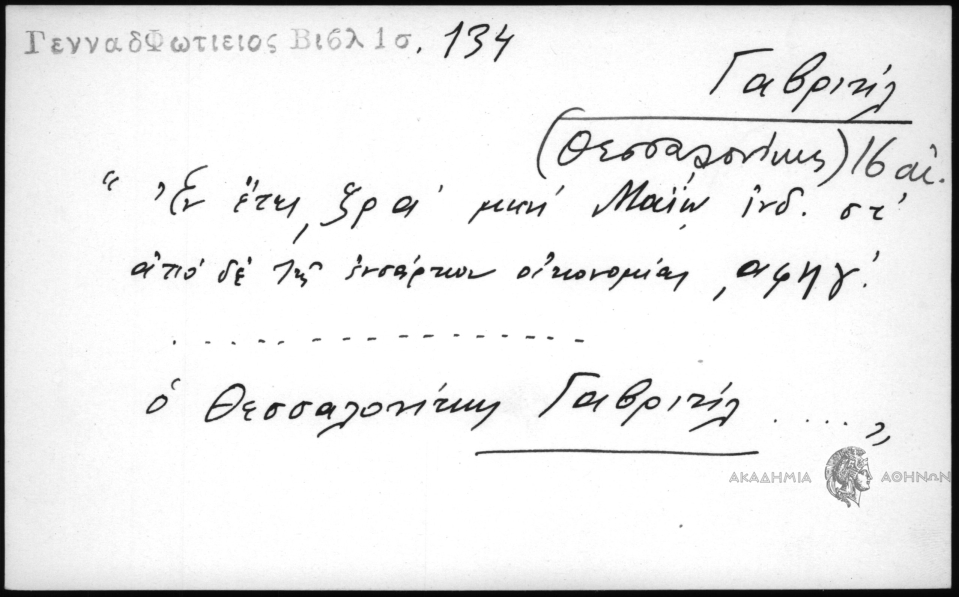 ΓενναδΦωτιειος Βιβλ 1σ. 134
Γαβριήλ
(Θεσσαλονίκης) 16 αἰ.
“ Ἐν ἔτει ͵ζρα΄ μηνὶ Μαΐῳ ἰνδ. στ΄
ἀπὸ δὲ τῆς ἐνσάρκου οἰκονομίας ͵αφηγ΄.
. . . . . . . . . . . . . . . .
ὁ Θεσσαλονίκης Γαβριήλ . . . . . „
ΑΚΑΔΗΜΙΑ ΑΘΗΝΩΝ